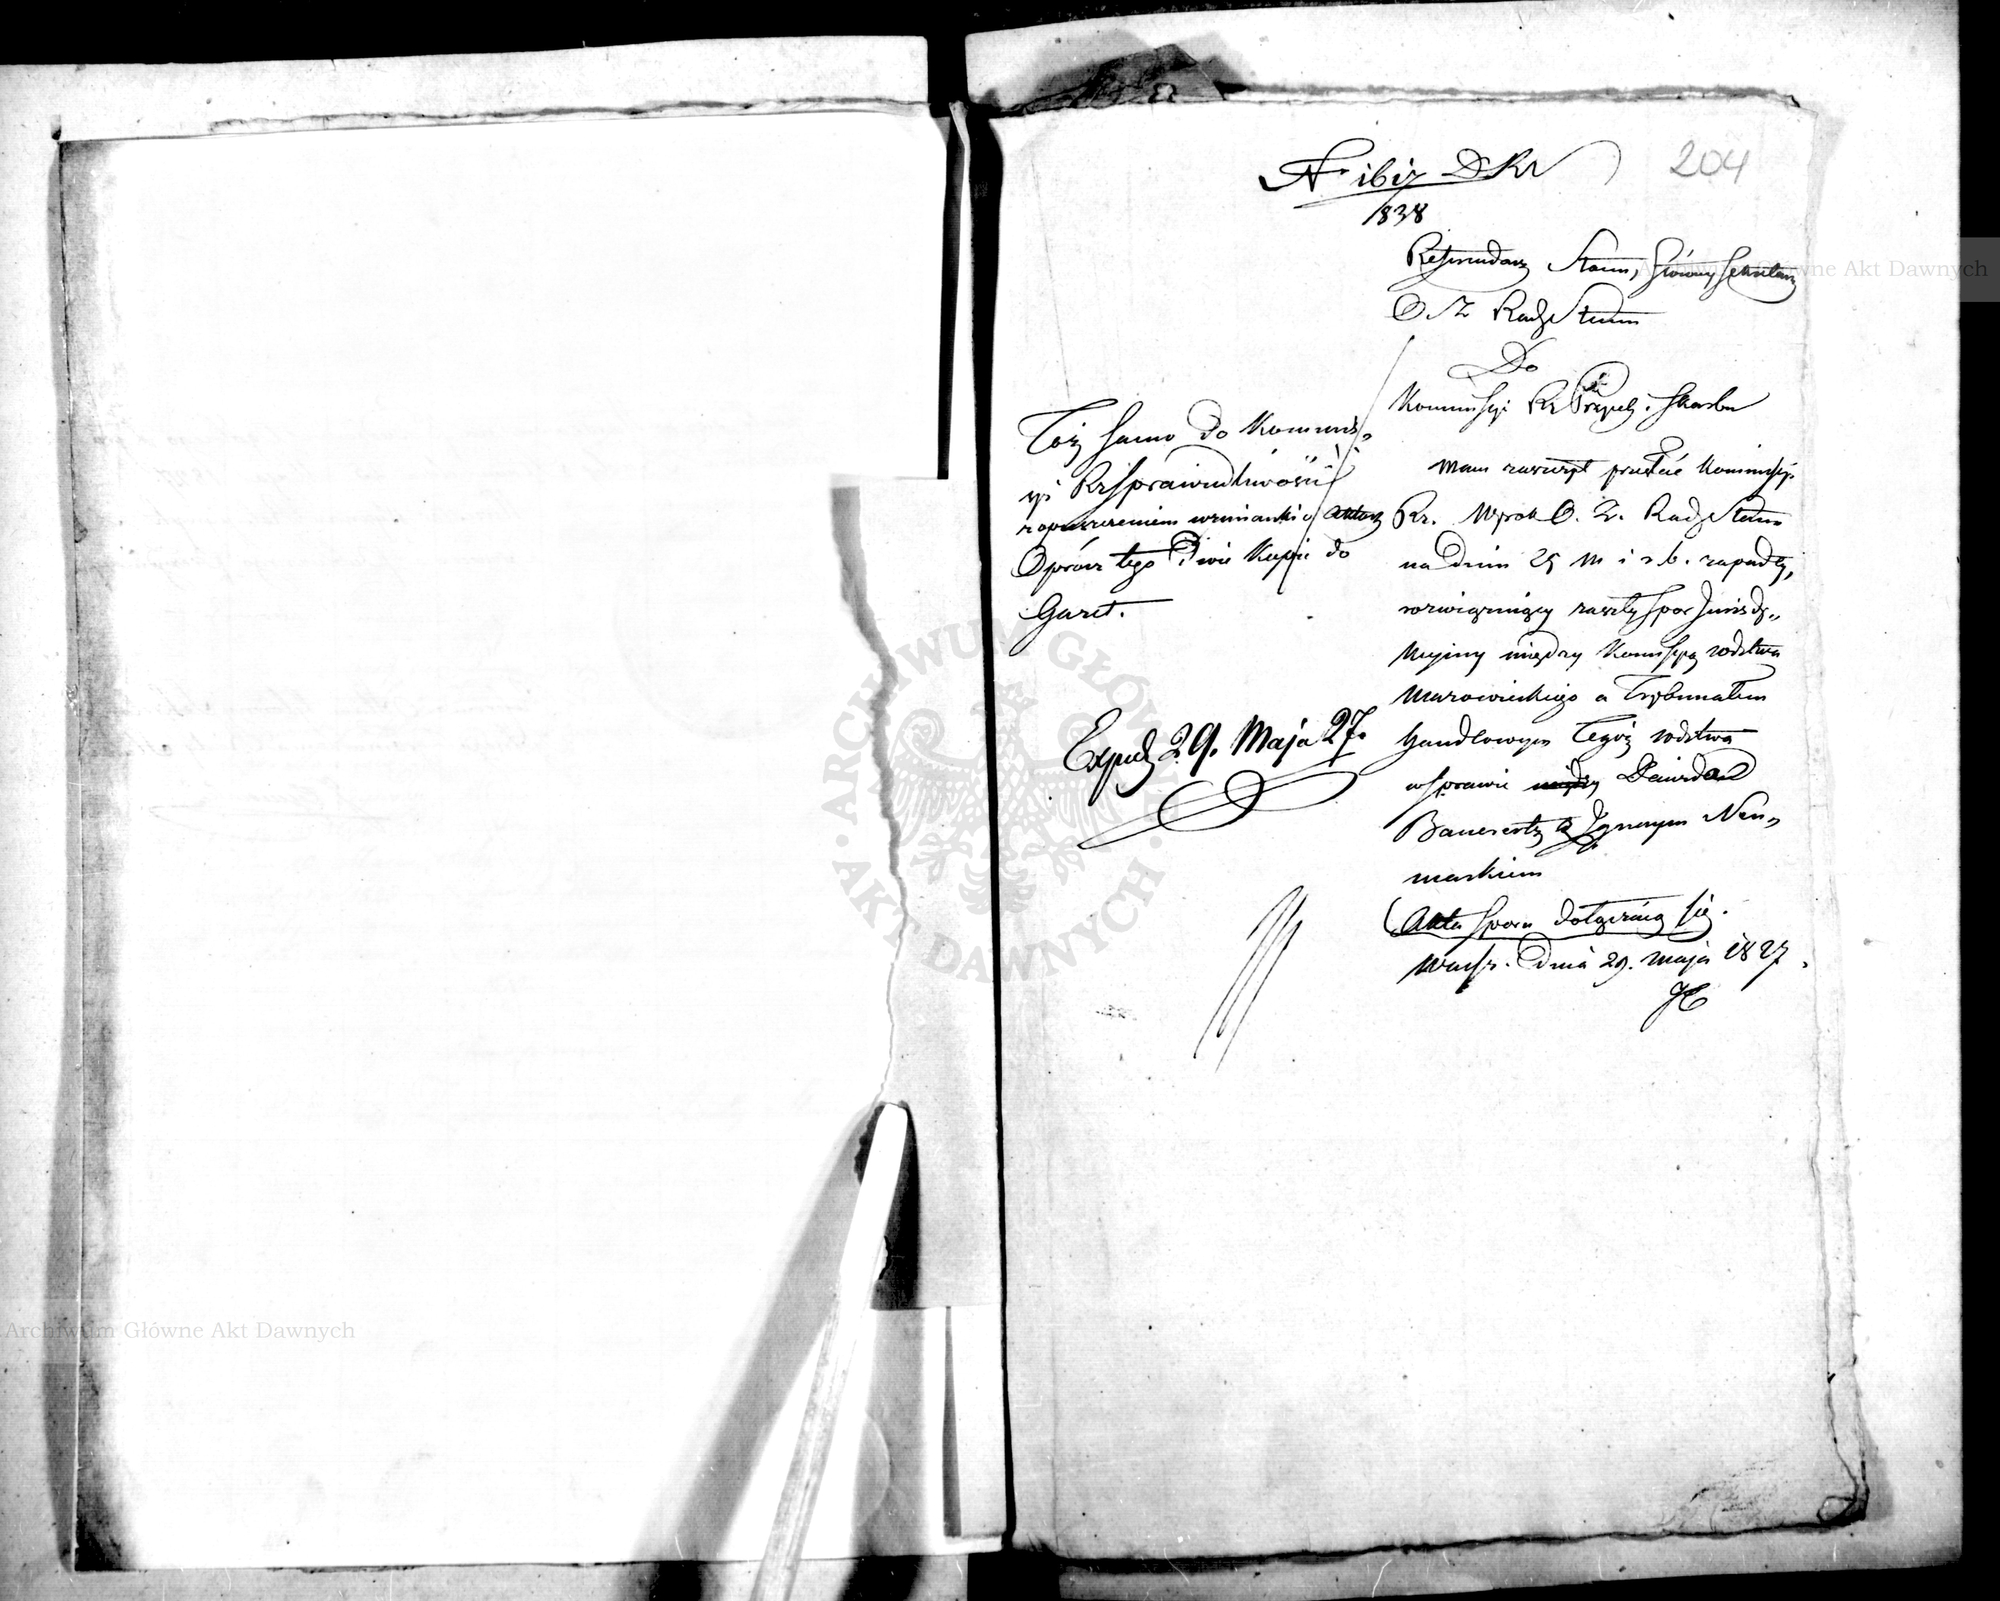 204
1838
Referendarz Stanu, Główny Sekretarz
O. Z. Rady Stanu
Do
Kommissyi Rz Przych i Skarbu
Mam zaszczyt przesłać Kommissyi
Rz. Wyrok O. Z. Rady Stanu
na dniu 25 m i r. b. zapadły,
rozwiązujący zaszły spor Jurisdy„
kcyiny między Kommissyą wdztwa
Mazowieckiego a Trybunałem
Handlowym Tegoż wdztwa
w sprawie między Dawida
Ignacym Neu„
markiem
Akta sporu dołączaią się.
Warsz. Dnia 29. maja 1827.
Toż samo do Kommis„
syi Rz Sprawiedliwości
z opuszczeniem wzmianki o Aktach
Oprócz tego Dwie Kopie do
Gazet.
Exped 29. Maja 27.
ARCHIWUM GŁÓWNE
AKT DAWNYCH
Archiwum Główne Akt Dawnych
Archiwum Główne Akt Dawnych